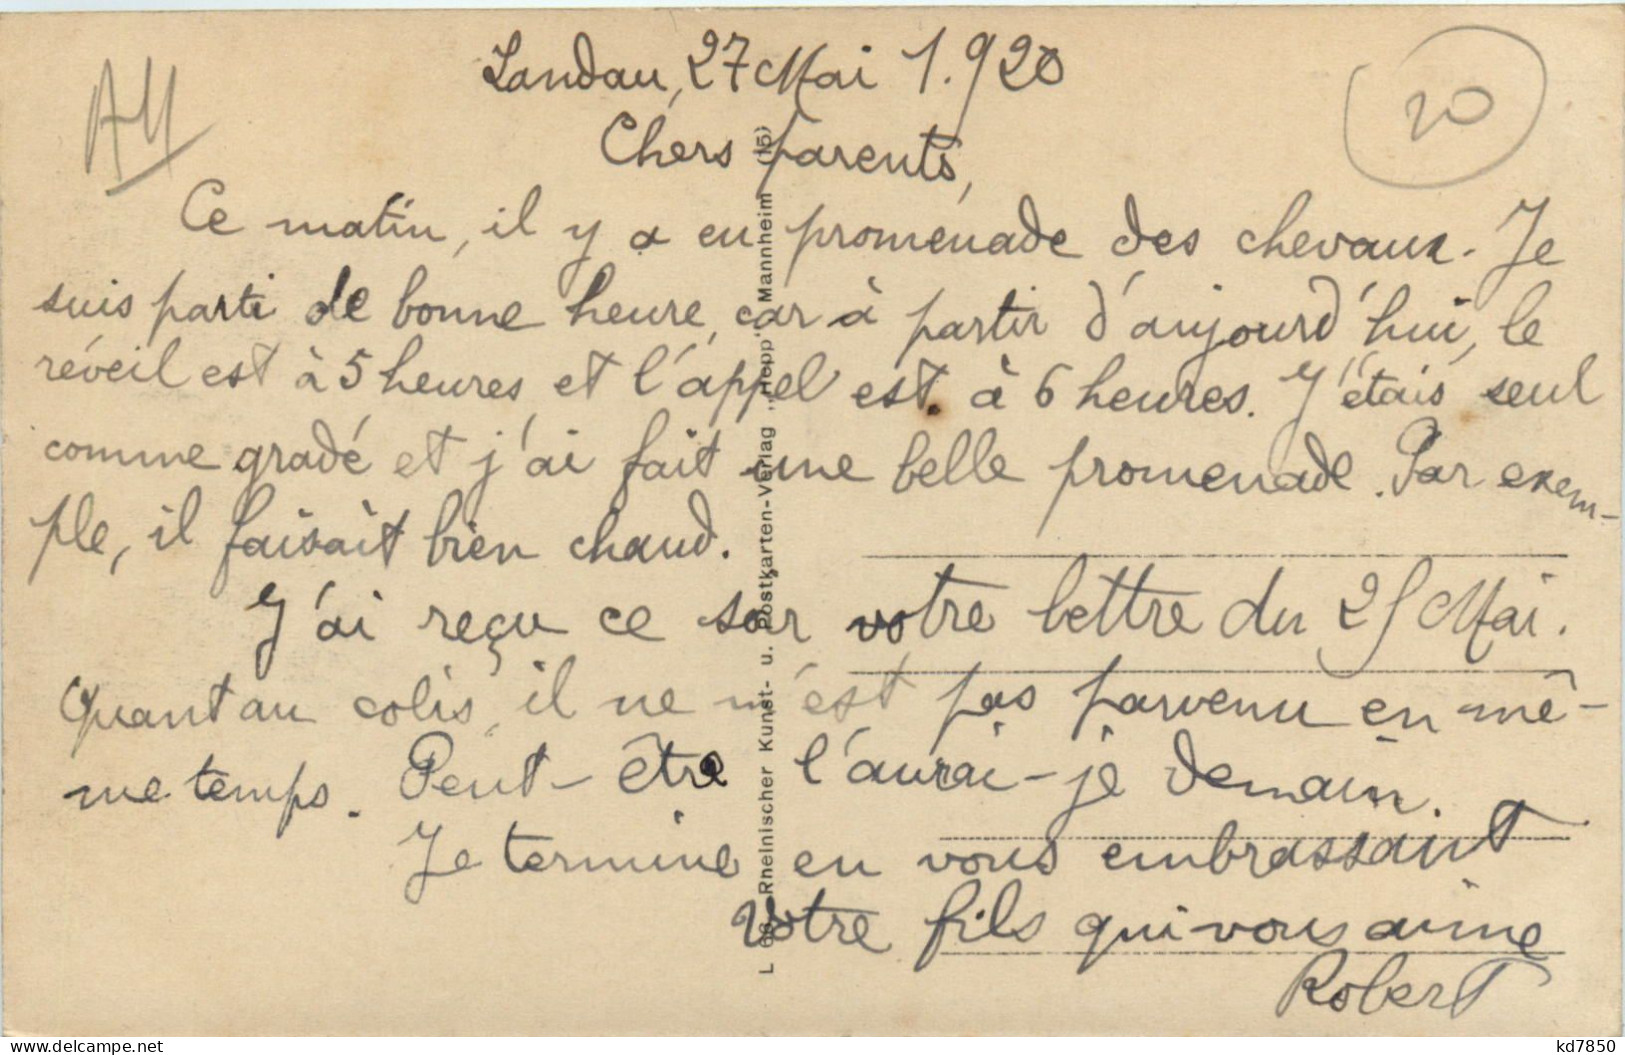 Landau, 27 Mai 1.920
20
Chers parents,
Ce matin, il y a eu promenade des chevaux. Je
suis parti de bonne heure, car à partir d'aujourd'hui, le
réveil est à 5 heures et l'appel est à 6 heures. J'étais seul
comme gradé et j'ai fait une belle promenade. Par exem-
ple, il faisait bien chaud.
J'ai reçu ce soir votre lettre du 25 Mai.
Quant au colis, il ne m'est pas parvenu en mê-
me temps. Peut-être l'aurai-je demain.
Je termine en vous embrassant
Votre fils qui vous aime
Robert
Rheinischer Kunst- u. Postkarten-Verlag „Hepp“, Mannheim (15)
www.delcampe.net
kd7850